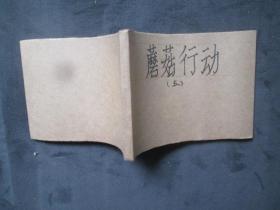 蘑菇行动
（五）